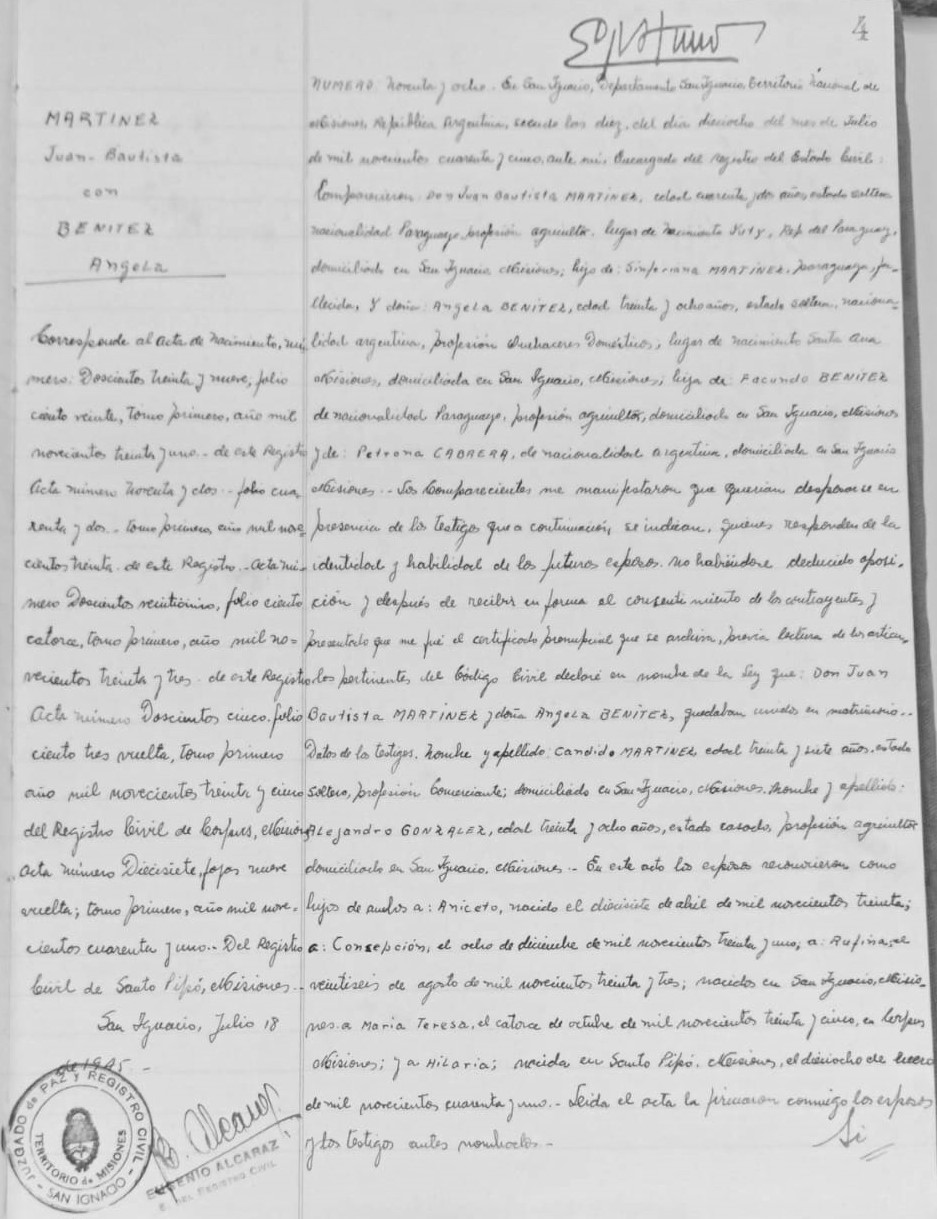 4
MARTINEZ
Juan-Bautista
con
BENITEZ
Angela
Corresponde al acta de nacimiento, nú-
mero: Doscientos treinta y nueve, folio
ciento veinte, Tomo primero, año mil
novecientos treinta y uno.- de este Registro
Acta número Noventa y dos.- folio cua-
renta y dos.- tomo primero, año mil nove-
cientos treinta. de este Registro.- Acta nú-
mero Doscientos veintinueve, folio ciento
catorce, tomo primero, año mil no-
vecientos treinta y tres. de este Registro
Acta número Doscientos cinco. folio
ciento tres vuelta, tomo primero
año mil novecientos treinta y cinco
del Registro Civil de Corpus, Misiones
acta número Diecisiete, fojas nueve
vuelta; tomo primero, año mil nove-
cientos cuarenta y uno.- Del Registro
Civil de Santo Pipó, Misiones.-
San Ignacio, Julio 18
de 1945.-
JUZGADO de PAZ y REGISTRO CIVIL
TERRITORIO de MISIONES
- SAN IGNACIO -
EUGENIO ALCARAZ
REGISTRO CIVIL
NUMERO: Noventa y ocho.- En San Ignacio, Departamento San Ignacio, Territorio Nacional de
Misiones, República Argentina, siendo las diez, del día dieciocho del mes de Julio
de mil novecientos cuarenta y cinco, ante mí, Encargado del Registro del Estado Civil:
Comparecieron: Don Juan Bautista MARTINEZ, edad cuarenta y dos años, estado soltero
nacionalidad Paraguayo, profesión agricultor. lugar de nacimiento Yuty, Rep. del Paraguay,
domiciliado en San Ignacio Misiones; hijo de: Sinforiana MARTINEZ, paraguaya, fa-
llecida, y doña: Angela BENÍTEZ, edad treinta y ocho años, estado soltera, naciona-
lidad argentina, profesión Quehaceres Domésticos, lugar de nacimiento Santa Ana
Misiones, domiciliada en San Ignacio, Misiones; hija de: Facundo BENITEZ
de nacionalidad Paraguayo, profesión agricultor, domiciliado en San Ignacio, Misiones
y de: Petrona CABRERA, de nacionalidad argentina, domiciliada en San Ignacio
Misiones.- Los Comparecientes me manifestaron que querían desposarse en
presencia de los testigos que a continuación, se indican, quienes responden de la
identidad y habilidad de los futuros esposos. No habiéndose deducido oposi-
ción y después de recibir en forma el consentimiento de los contrayentes y
presentado que me fué el certificado prenupcial que se archiva, previa lectura de los artícu-
los pertinentes del Código Civil declaré en nombre de la Ley que: Don Juan
Bautista MARTINEZ y doña Angela BENÍTEZ, quedaban unidos en matrimonio.-
Datos de los testigos. Nombre y apellido: Candido MARTINEZ, edad treinta y siete años, estado
soltero, profesión Comerciante; domiciliado en San Ignacio, Misiones. Nombre y apellido:
Alejandro GONZALEZ, edad treinta y ocho años, estado casado, profesión agricultor
domiciliado en San Ignacio. Misiones.- En este acto los esposos reconocieron como
hijos de ambos a: Aniceto, nacido el diecisiete de abril de mil novecientos treinta;
a: Consepción, el ocho de diciembre de mil novecientos treinta y uno; a: Rufina, el
veintiseis de agosto de mil novecientos treinta y tres; nacidos en San Ignacio, Misio-
nes. a María Teresa, el catorce de octubre de mil novecientos treinta y cinco, en Corpus
Misiones; y a Hilaria; nacida en Santo Pipó. Misiones, el dieciocho de Enero
de mil novecientos cuarenta y uno.- Leída el acta la firmaron conmigo los esposos
y los testigos antes nombrados.-